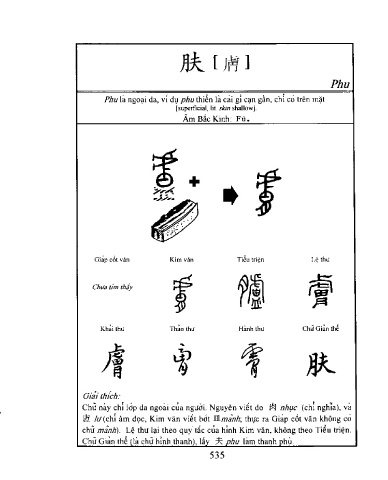 肤 [ 膚 ]
Phu
Phu là ngoại da, ví dụ phu thiển là cái gì cạn gần, chỉ có trên mặt
[superficial, lit. skin shallow].
Âm Bắc Kinh: Fū.
Giáp cốt văn Kim văn Tiểu triện Lệ thư
Chưa tìm thấy
Khải thư Thảo thư Hành thư Chữ Giản thể
膚 肤
Giải thích:
Chữ này chỉ lớp da ngoài của người. Nguyên viết do 肉 nhục (chỉ nghĩa), và
lư (chỉ âm đọc, Kim văn viết bớt 皿 mãnh, thực ra Giáp cốt văn không có
chữ mãnh). Lệ thư lại theo quy tắc của hình Kim văn, không theo Tiểu triện.
Chữ Giản thể (là chữ hình thanh), lấy 夫 phu làm thanh phù.
535